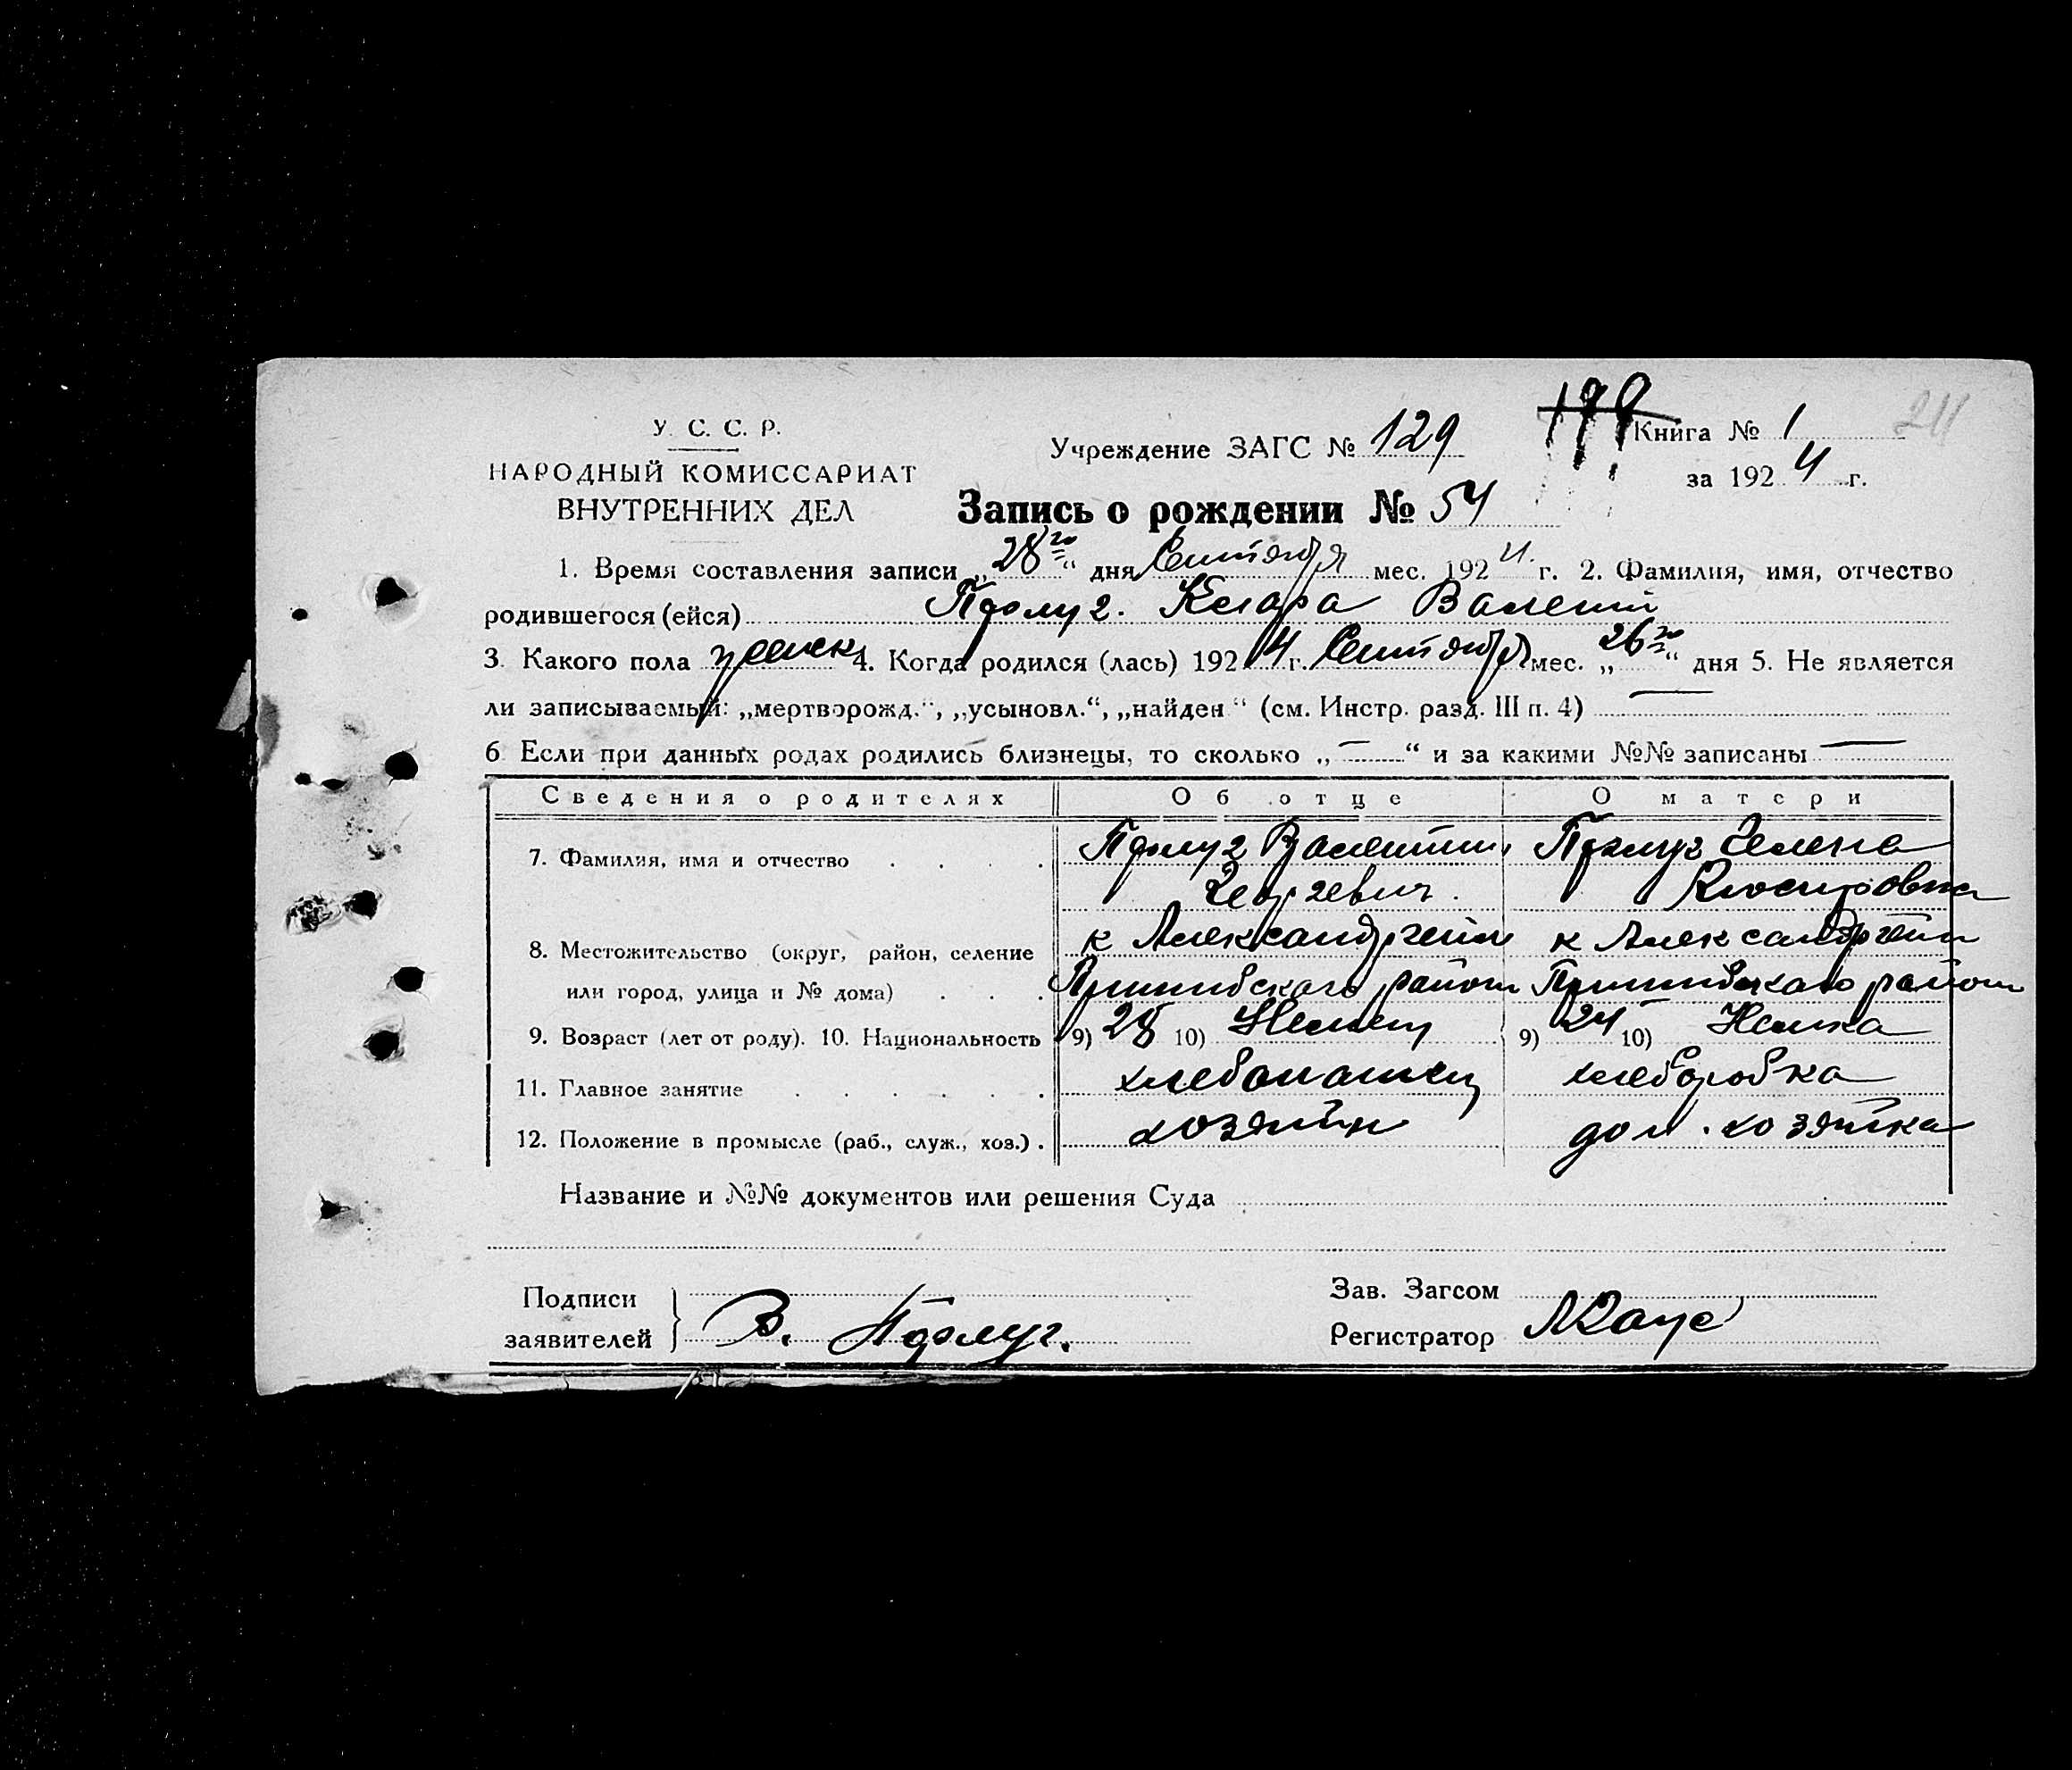 У. С. С. Р.
НАРОДНЫЙ КОМИССАРИАТ
ВНУТРЕННИХ ДЕЛ
Учреждение ЗАГС № 129
Книга № 1
211
за 1924 г.
Запись о рождении № 54
1. Время составления записи „28го“ дня Сентября мес. 1924 г. 2. Фамилия, имя, отчество
родившегося (ейся) Пфлуг. Клара Валент
3. Какого пола женск 4. Когда родился (лась) 1924 г. Сентября мес. „26го“ дня 5. Не является
ли записываемый: „мертворожд.“, „усыновл.“, „найден“ (см. Инстр. разд. III п. 4) —
6 Если при данных родах родились близнецы, то сколько „—“ и за какими №№ записаны —
Сведения о родителях Об отце О матери
7. Фамилия, имя и отчество . . . . Пфлуг Валентин Пфлуг Гелена
Георгевич.
8. Местожительство (округ, район, селение к Александргейм к Александргейм
или город, улица и № дома) . . . Пришибского район Пришибскаго район
9. Возраст (лет от роду). 10. Национальность 9) 28 10) Немец 9) 24 10) Немка
11. Главное занятие . . . . . . хлебопашец хлеборобка
12. Положение в промысле (раб., служ., хоз.) . хозяин дом. хозяйка
Название и №№ документов или решения Суда
Подписи
заявителей } В. Пфлуг.
Зав. Загсом
Регистратор